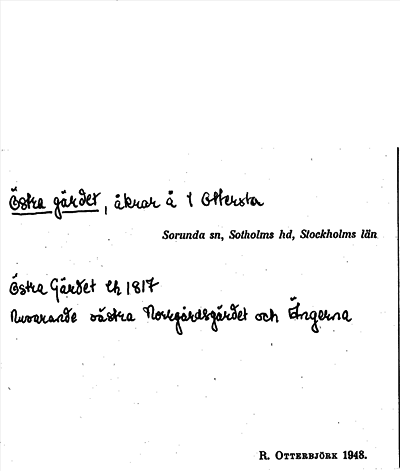 Östra gärdet, åkrar å 1 Ottersta
Sorunda sn, Sotholms hd, Stockholms län
Östra Gärdet Lh 1817
Nuvarande västra Norrgårdsgärdet och Ängerna
R. OTTERBJÖRK 1948.